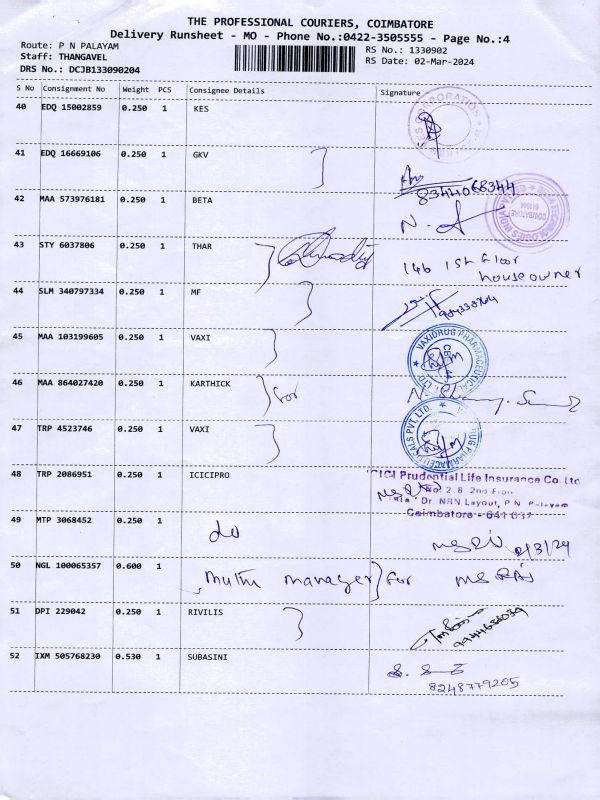 THE PROFESSIONAL COURIERS, COIMBATORE
Delivery Runsheet - MO - Phone No.:0422-3505555 - Page No.:4
Route: P N PALAYAM
RS No.: 1330902
Staff: THANGAVEL
RS Date: 02-Mar-2024
DRS No.: DCJB133090204
S No Consignment No Weight PCS Consignee Details Signature
40 EDQ 15002859 0.250 1 KES
41 EDQ 16669106 0.250 1 GKV
8344068344
42 MAA 573976181 0.250 1 BETA
43 STY 6037806 0.250 1 THAR
146 1st floor
house owner
44 SLM 340797334 0.250 1 MF
45 MAA 103199605 0.250 1 VAXI
VAXIDRUG PHARMACEUTICALS PVT. LTD.
46 MAA 864027420 0.250 1 KARTHICK for
47 TRP 4523746 0.250 1 VAXI
48 TRP 2086951 0.250 1 ICICIPRO
ICICI Prudential Life Insurance Co Ltd
2nd Floor
Dr NRN Layout, P.N. Palayam
Coimbatore - 641 037
49 MTP 3068452 0.250 1 do
2/3/24
50 NGL 100065357 0.600 1 Muthu manager for
51 DPI 229042 0.250 1 RIVILIS
52 IXM 505768230 0.530 1 SUBASINI
8248779205